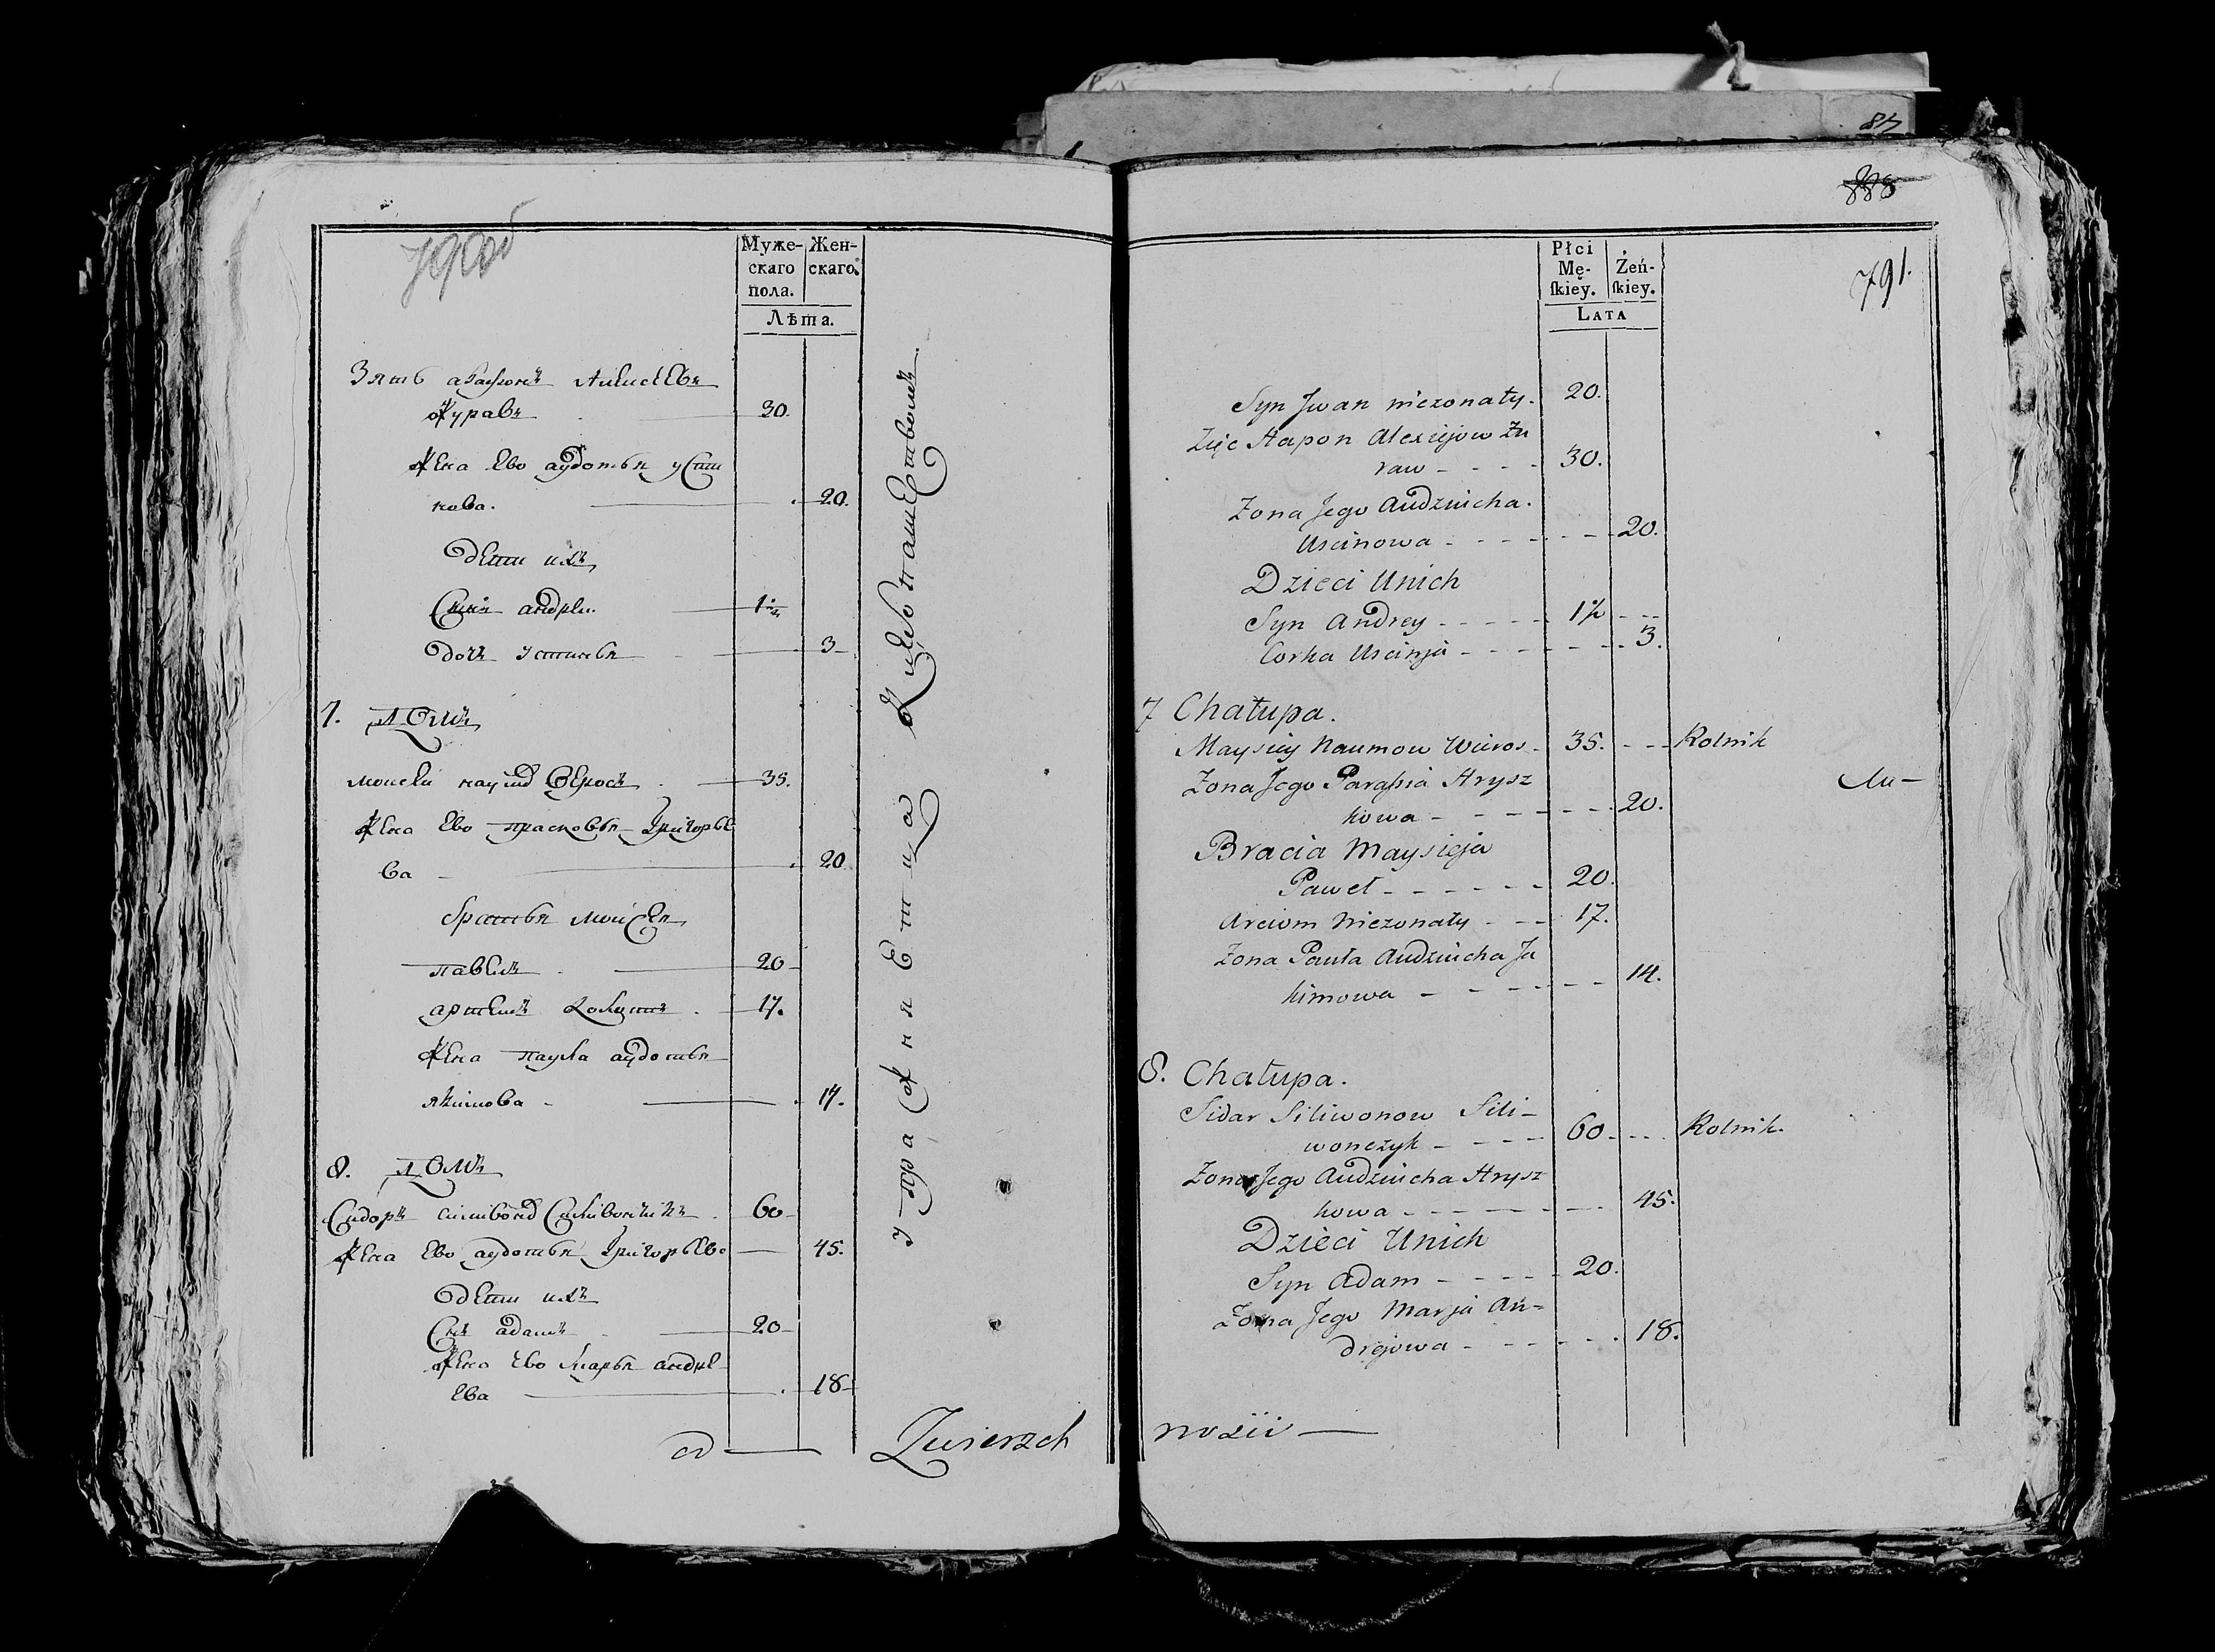 790об
Муже-
скаго
пола.
Жен-
скаго.
Лѣта.
Зять агапонъ Алексеевъ
Журавъ 30.
Жена Ево аудотья усти
нова. 20.
дети ихъ
Снъ андрей 1½
дочь устинья 3
7. Домъ
моисей наумов Верос 35.
Жена Ево прасковья Григорье
ва 20
братья моисея
павелъ 20
артемъ холостъ 17.
Жена паула аудотья
якимова 14.
8. Домъ
Сидоръ силивонов Силивончикъ 60
Жена Ево аудотья Григорьева 45.
дети ихъ
Снъ адамъ 20
Жена Ево Марья андре
Ева 18
Zwierzch
87
888
791.
Płci
Mę-
ſkiey.
Żeń-
ſkiey.
LATA
Syn Jwan nieżonaty. 20.
Zięć Hapon Alexiejow Żu
raw 30.
Żona Jego Audziucha.
Uscinowa 20.
Dzieci Unich
Syn Andrey 1½
Corka Uscinja 3.
7 Chałupa.
Maysiey Naumow Wieros 35. Rolnik
Żona Jego Parasia Hrysz
kowa 20.
Bracia Maysieja
Paweł 20.
Arciom Nieżonaty 17.
Żona Pauła Audziucha Ja
kimowa 14.
8. Chałupa.
Sidar Siliwonow Sili-
wonczyk 60 Rolnik.
Żona Jego Audziucha Hrysz
kowa 45.
Dzieci Unich
Syn Adam 20.
Żona Jego Marja An-
drejowa 18.